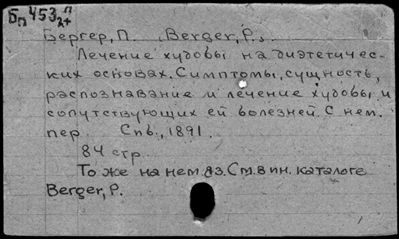 Бп 453 п/2+
Бергер, П. Berger, P.
Лечение худовы на диэтетичес-
ких основах. Симптомы, сущность,
распознавание и лечение худовы и
сопутствующих ей болезней. С нем.
пер. Спб., 1891.
84 стр.
То же на нем. яз. См. в ин. каталоге
Berger, P.